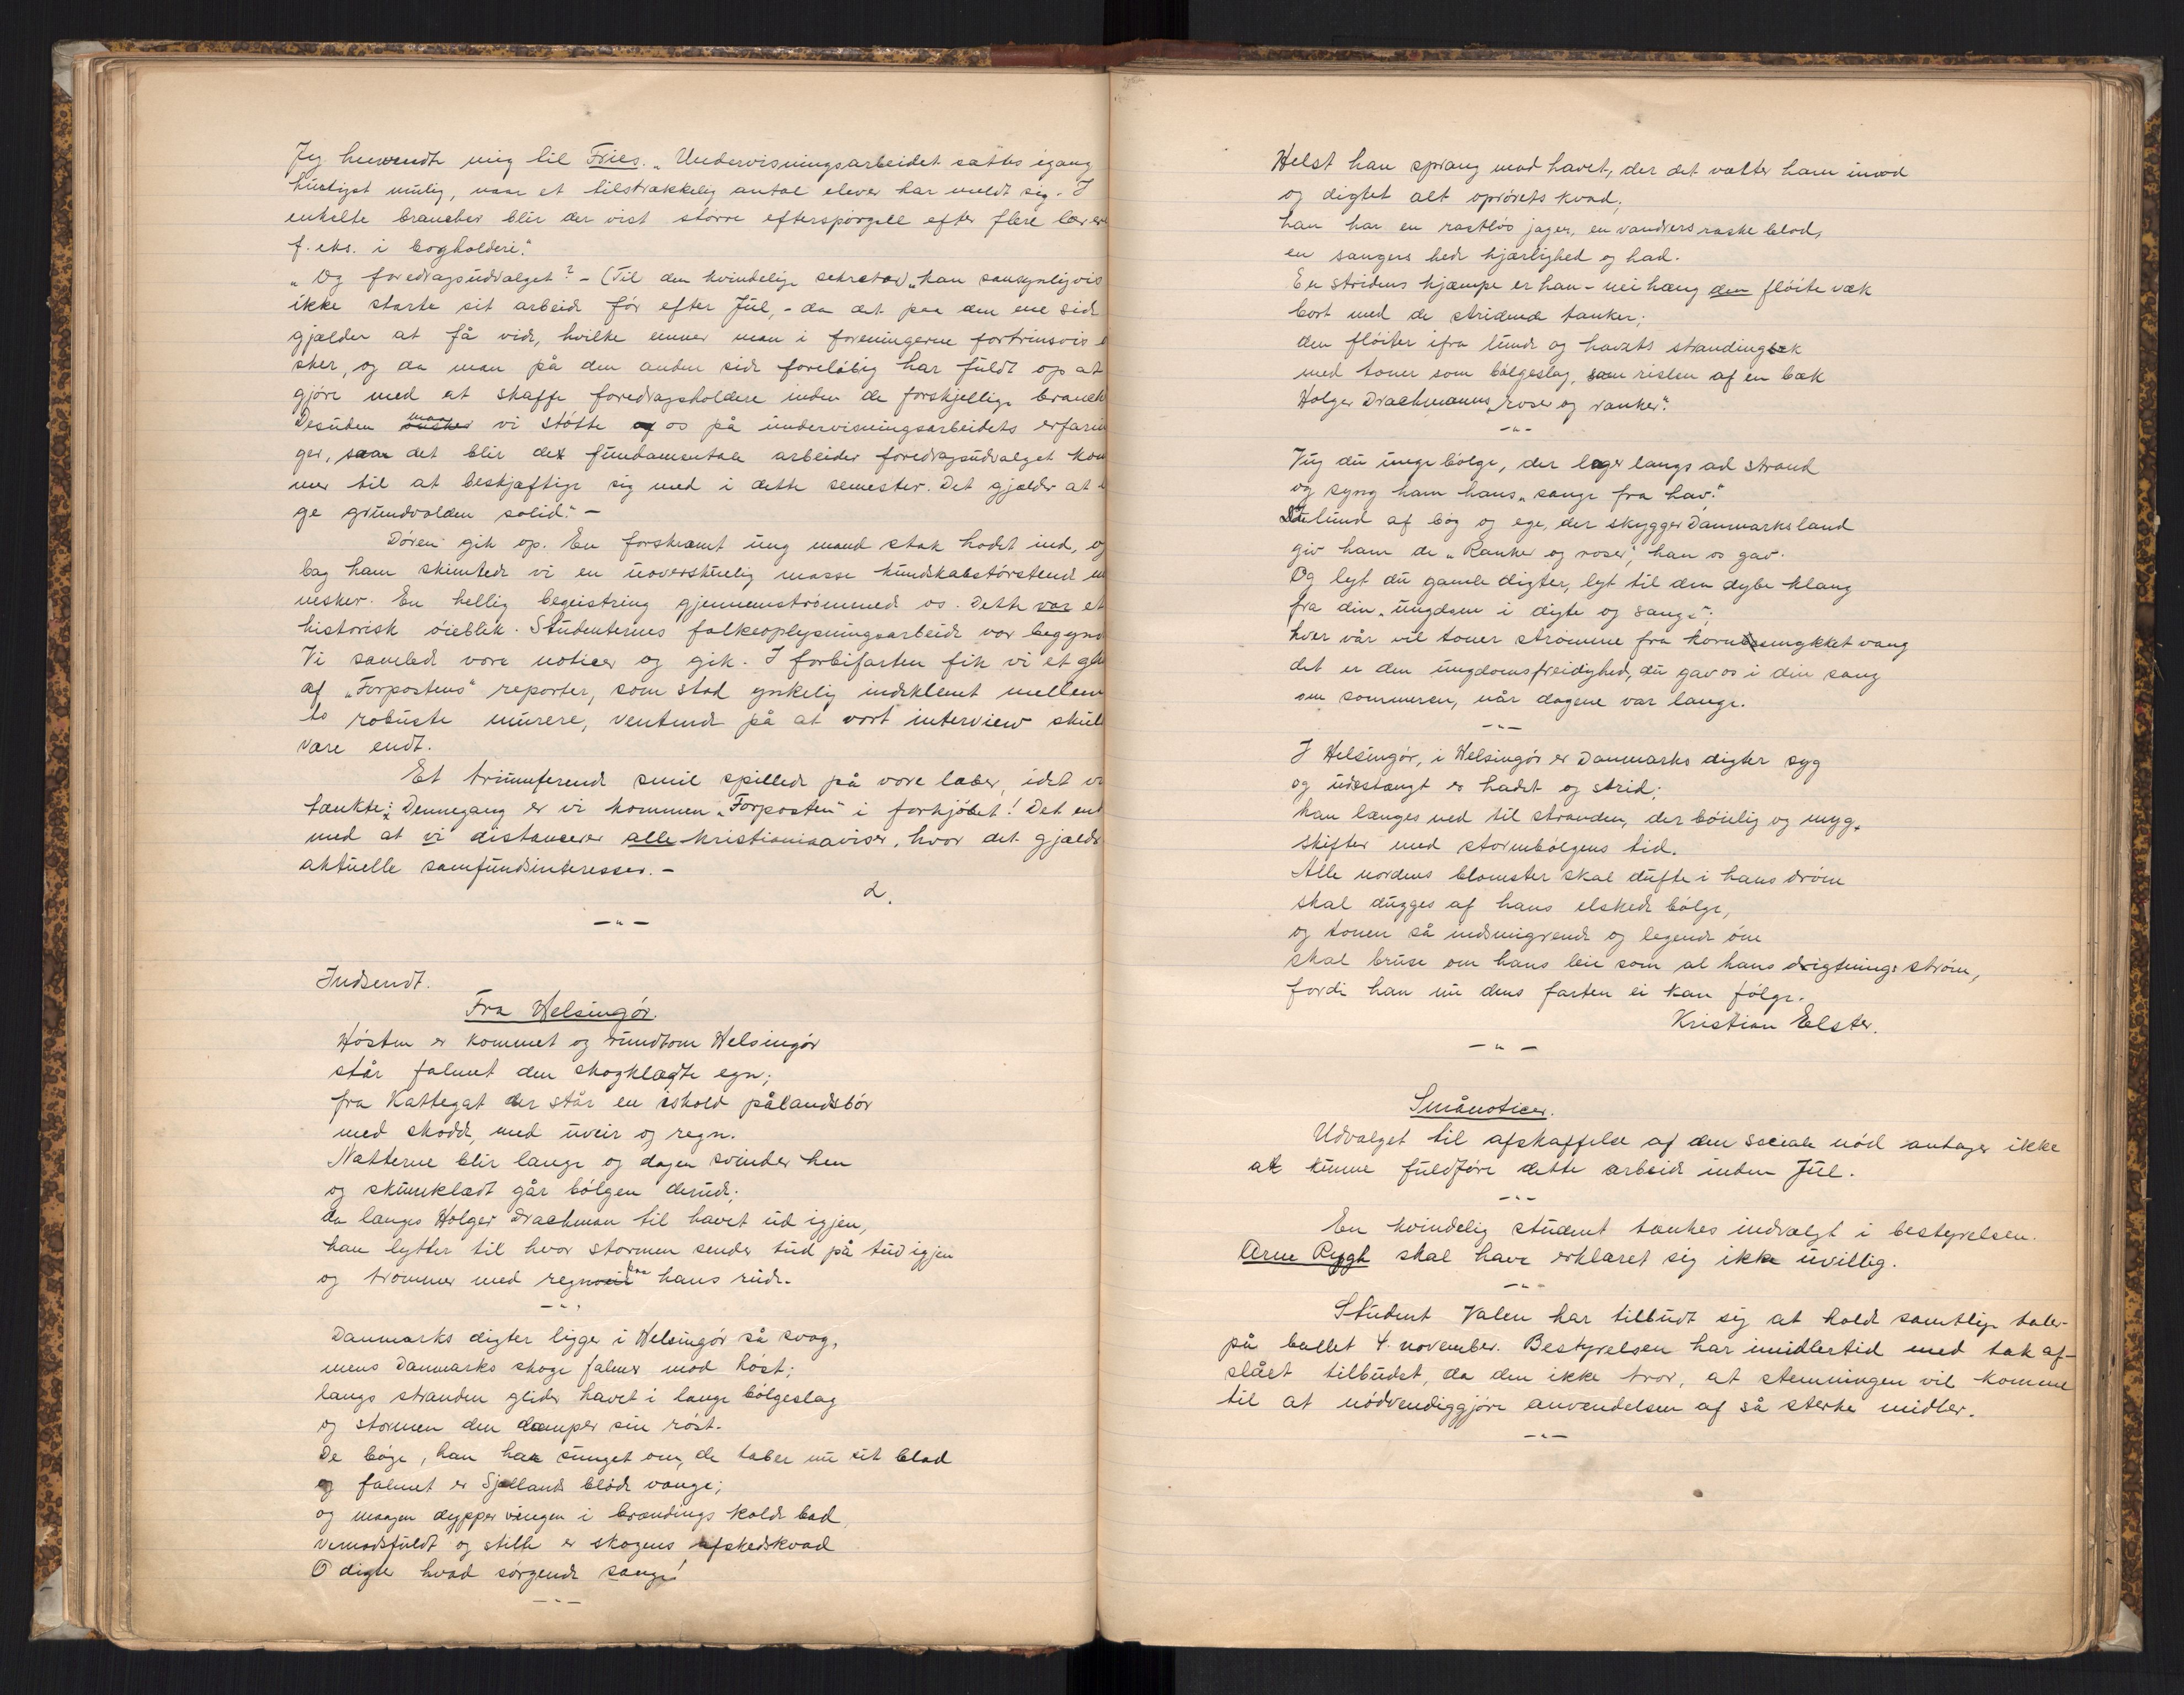 Jeg henvendte mig til Fries. „Undervisningsarbeidet sættes igang
hurtigst mulig, naar et tilstrækkelig antal elever har meldt sig. I
enkelte brancher blir der vist større efterspørgsel efter flere lærer
f. eks. i bogholderi."
„Og foredragsudvalget? – (Til den kvindelige sekretær) „kan sansynligvis
ikke starte sit arbeide før efter Jul, – da det paa den ene side
gjælder at få vide, hvilke emner man i foreningerne fortrinsvis
sker, og da man på den anden side foreløbig har fuldt op at
gjøre med at skaffe foredragsholdere inden de forskjellige branch
Desuden maa vi støtte os på undervisningsarbeidets erfarin
ger, saa det blir det fundamentale arbeider foredragsudvalget kom
mer til at beskjæftige sig med i dette semester. Det gjælder at
ge grundvolden solid." –
Døren gik op. En forskræmt ung mand stak hodet ind, og
bag ham skimtede vi en uoverskuelig masse kundskabstørstende m
nesker. En hellig begeistring gjennemstrømmede os. Dette var et
historisk øieblik. Studenternes folkeoplysningsarbeide var begynd
Vi samlede vore noticer og gik. I forbifarten fik vi et gli
af „Forpostens" reporter, som stod ynkelig indeklemt mellem
to robuste murere, ventende på at vort interview skul
være endt.
Et triumferende smil spillede på vore læber, idet vi
tænkte: Dennegang er vi kommen „Forposten" i forkjøbet! Det end
med at vi distancerer alle kristianiaaviser, hvor det gjælder
aktuelle samfundsinteresser. –
2.
– " –
Indsendt.
Fra Helsingør.
Høsten er kommet og rundtom Helsingør
står falmet den skogklædte egn;
fra Kattegat der står en iskold pålandsbør
med skodde, med uveir og regn.
Nætterne blir lange og dagen svinder hen
og skumklædt går bølgen derude;
da længes Holger Drachman til havet ud igjen,
han lytter til hvor stormen sender tud på tud igjen
og trommer med regn paa hans rude.
– " –
Danmarks digter ligger i Helsingør så svag,
mens Danmarks skoge falmer mod høst;
langs stranden glider havet i lange bølgeslag
og stormen den dæmper sin røst.
De bøge, han har sunget om, de taber nu sit blad
og falmet er Sjællands bløde vange;
og maagen dypper vingen i brændings kolde bad,
vemodsfuldt og stille er skogens afskedskvad
O digter hvad sørgende sange!
– " –
Helst han sprang mod havet, der det vælter ham imod
og digtet alt oprørets kvad;
han har en rastløs jager, en vandrers raske blod,
en sangers hede kjærlighed og had.
En stridens kjæmpe er han – nei hæng den fløite væk
bort med de stridende tanker;
den fløiter ifra lunde og havets strandingsvæk
med toner som bølgeslag, som rislen af en bæk
Holger Drachmanns „roser og ranker."
– " –
Vug du unge bølge, der leger langs ad strand
og syng ham hans „sange fra hav."
Du lund af bøg og ege, der skygger Danmarks land
giv ham de „Ranker og roser", han os gav.
Og lyt du gamle digter, lyt til den dybe klang
fra din „ungdom i digte og sange";
hver vår vil toner strømme fra kornsmykket vang
det er den ungdomsfreidighed, du gav os i din sang
om sommeren, når dagene var lange.
– " –
I Helsingør, i Helsingør er Danmarks digter syg
og udestængt er hadet og strid;
han længes ned til stranden, der bøielig og myg,
skifter med stormbølgens tid.
Alle nordens blomster skal dufte i hans drøm
skal dugges af hans elskede bølge,
og tonen så indsmigrende og legende øm
skal bruse om hans leie som al hans digtnings strøm,
fordi han nu dens farten ei kan følge.
Kristian Elster.
– " –
Smånoticer.
Udvalget til afskaffelse af den sociale nød antager ikke
at kunne fuldføre dette arbeide inden Jul.
– " –
En kvindelig student tænkes indvalgt i bestyrelsen.
Arne Rygh skal have erklæret sig ikke uvillig.
– " –
Student Valen har tilbudt sig at holde samtlige taler
på ballet 4. november. Bestyrelsen har imidlertid med tak af-
slået tilbudet, da den ikke tror, at stemningen vil komme
til at nødvendiggjøre anvendelsen af så sterke midler.
– " –